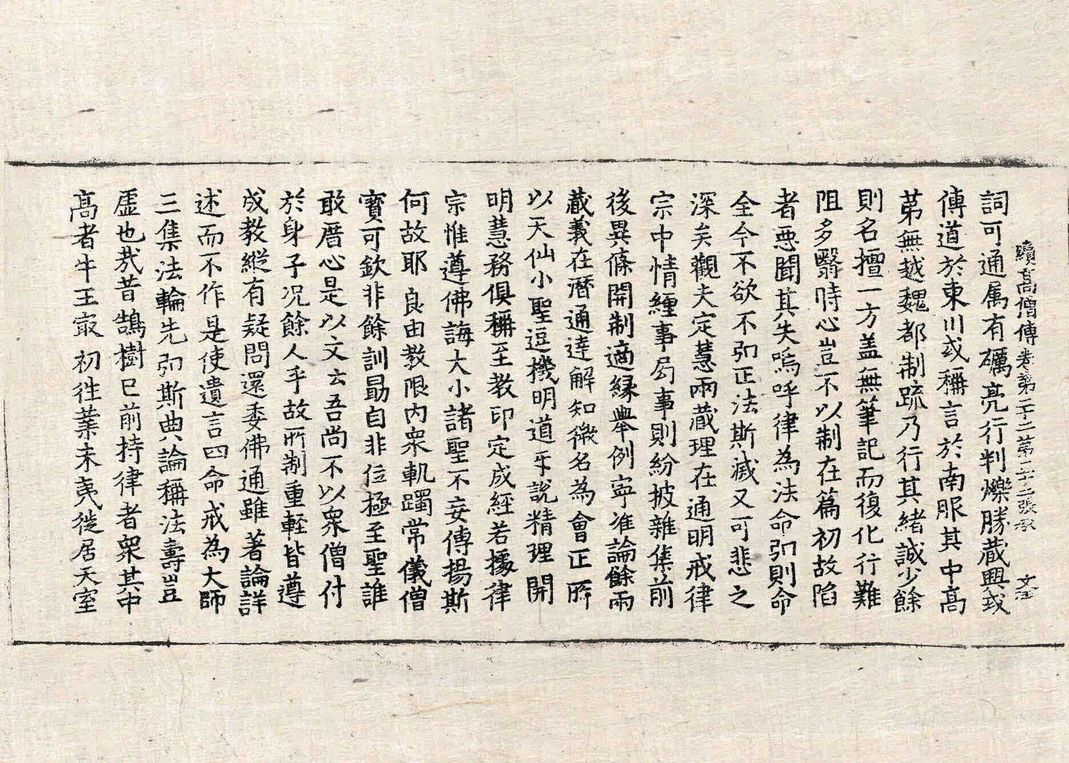 詞可通属有礪亮行判爍勝蔵興或
續高僧傳卷第二十二第二十二張
傳道於東川或稱言於南服其中高
苐無越魏都制疏乃行其緒誠少餘
則名擅一方盖無筆記而復化行難
阻多翳時心豈不以制在篇初故陷
者惡聞其失嗚呼律為法命弘則命
全今不欲不弘正法斯滅又可悲之
深矣觀夫定慧兩蔵理在通明戒律
宗中情纏事局事則紛披雜集前
後異條開制適縁舉例寧准論餘兩
蔵義在曆通達解知微名為會正所
以天仙小聖逗機明道乎說精理開
明慧務俱稱至教印定成經若據律
宗惟遵佛誨大小諸聖不妄傳揚斯
何故耶良由教限内衆軌躅常儀僧
寳可欽非餘訓勗自非位極至聖誰
敢曆心是以文云吾尚不以衆僧付
於身子况餘人乎故所制重輕皆遵
成教縱有疑問還委佛通雖著論詳
述而不作是使遺言四命戒為大師
三集法輪先弘斯典論稱法壽豈
虛也㢤昔鵠樹已前持律者衆其中
高者牛王㝡初往業未夷徙居天室